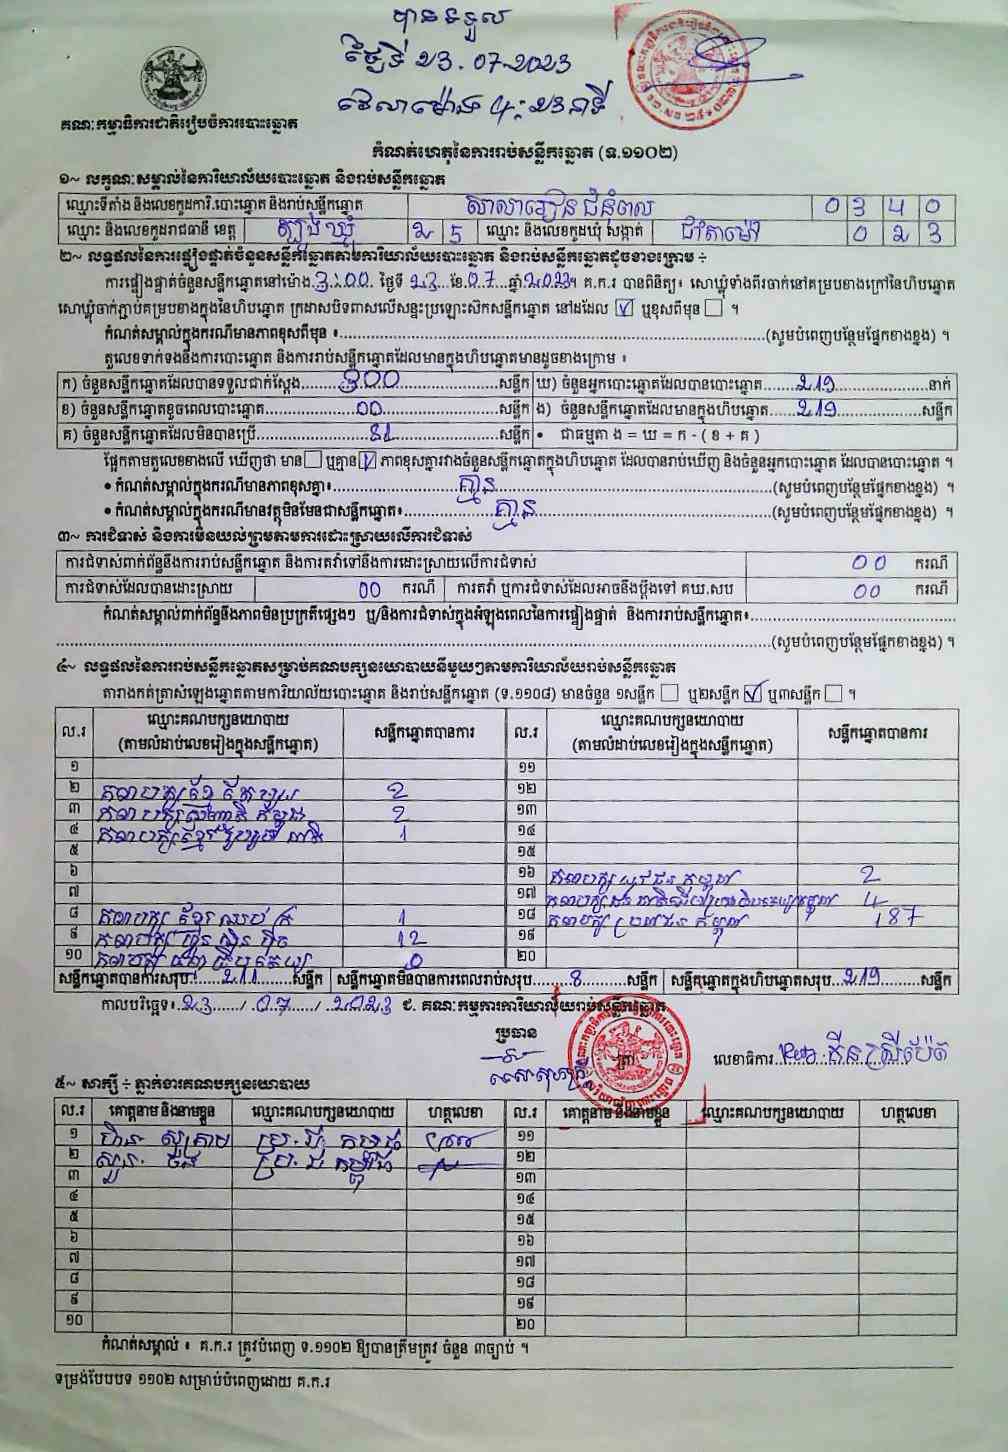 បានទទួល
ថ្ងៃទី 23.07.2023
វេលាម៉ោង 4:23 នាទី
គណៈកម្មាធិការជាតិរៀបចំការបោះឆ្នោត
កំណត់ហេតុនៃការរាប់សន្លឹកឆ្នោត (ទ.១១០២)
១~ លក្ខណៈសម្គាល់នៃការិយាល័យបោះឆ្នោត និងរាប់សន្លឹកឆ្នោត
ឈ្មោះទីតាំង និងលេខកូដការិ.បោះឆ្នោត និងរាប់សន្លឹកឆ្នោត សាលារៀន ជំនុំពល 0 3 4 0
ឈ្មោះ និងលេខកូដរាជធានី ខេត្ត ត្បូងឃ្មុំ 2 5 ឈ្មោះ និងលេខកូដឃុំ សង្កាត់ 0 2 3
២~ លទ្ធផលនៃការផ្ទៀងផ្ទាត់ចំនួនសន្លឹកឆ្នោតតាមការិយាល័យបោះឆ្នោត និងរាប់សន្លឹកឆ្នោតដូចខាងក្រោម ÷
ការផ្ទៀងផ្ទាត់ចំនួនសន្លឹកឆ្នោតនៅម៉ោង 3:00 ថ្ងៃទី 23 ខែ 07 ឆ្នាំ 2023។ គ.ក.រ បានពិនិត្យ៖ សោឃ្លុំទាំងពីរចាក់នៅគម្របខាងក្រៅនៃហិបឆ្នោត
សោឃ្លុំចាក់ភ្ជាប់គម្របខាងក្នុងនៃហិបឆ្នោត ក្រដាសបិទពាសលើសន្ទះប្រឡោះសិកសន្លឹកឆ្នោត នៅដដែល ☑ ឬខុសពីមុន ☐ ។
កំណត់សម្គាល់ក្នុងករណីមានភាពខុសពីមុន ៖ (សូមបំពេញបន្ថែមផ្នែកខាងខ្នង) ។
តួលេខទាក់ទងនឹងការបោះឆ្នោត និងការរាប់សន្លឹកឆ្នោតដែលមានក្នុងហិបឆ្នោតមានដូចខាងក្រោម ៖
ក) ចំនួនសន្លឹកឆ្នោតដែលបានទទួលជាក់ស្តែង 300 សន្លឹក ឃ) ចំនួនអ្នកបោះឆ្នោតដែលបានបោះឆ្នោត 219 នាក់
ខ) ចំនួនសន្លឹកឆ្នោតខូចពេលបោះឆ្នោត 00 សន្លឹក ង) ចំនួនសន្លឹកឆ្នោតដែលមានក្នុងហិបឆ្នោត 219 សន្លឹក
គ) ចំនួនសន្លឹកឆ្នោតដែលមិនបានប្រើ 81 សន្លឹក • ជាធម្មតា ង = ឃ = ក - ( ខ + គ )
ផ្អែកតាមតួលេខខាងលើ ឃើញថា មាន ☐ ឬគ្មាន ☑ ភាពខុសគ្នារវាងចំនួនសន្លឹកឆ្នោតក្នុងហិបឆ្នោត ដែលបានរាប់ឃើញ និងចំនួនអ្នកបោះឆ្នោត ដែលបានបោះឆ្នោត ។
• កំណត់សម្គាល់ក្នុងករណីមានភាពខុសគ្នា៖ គ្មាន (សូមបំពេញបន្ថែមផ្នែកខាងខ្នង) ។
• កំណត់សម្គាល់ក្នុងករណីមានវត្ថុមិនមែនជាសន្លឹកឆ្នោត៖ គ្មាន (សូមបំពេញបន្ថែមផ្នែកខាងខ្នង) ។
៣~ ការជំទាស់ និងការមិនយល់ព្រមតាមការដោះស្រាយលើការជំទាស់
ការជំទាស់ពាក់ព័ន្ធនឹងការរាប់សន្លឹកឆ្នោត និងការតវ៉ាទៅនឹងការដោះស្រាយលើការជំទាស់ 00 ករណី
ការជំទាស់ដែលបានដោះស្រាយ 00 ករណី ការតវ៉ា ឬការជំទាស់ដែលអាចនឹងប្តឹងទៅ គឃ.សប 00 ករណី
កំណត់សម្គាល់ពាក់ព័ន្ធនឹងភាពមិនប្រក្រតីផ្សេងៗ ឬ/និងការជំទាស់ក្នុងអំឡុងពេលនៃការផ្ទៀងផ្ទាត់ និងការរាប់សន្លឹកឆ្នោត៖
(សូមបំពេញបន្ថែមផ្នែកខាងខ្នង) ។
៤~ លទ្ធផលនៃការរាប់សន្លឹកឆ្នោតសម្រាប់គណបក្សនយោបាយនីមួយៗតាមការិយាល័យរាប់សន្លឹកឆ្នោត
តារាងកត់ត្រាសំឡេងឆ្នោតតាមការិយាល័យបោះឆ្នោត និងរាប់សន្លឹកឆ្នោត (ទ.១១០៨) មានចំនួន ១សន្លឹក ☐ ឬ២សន្លឹក ☑ ឬ៣សន្លឹក ☐ ។
ល.រ ឈ្មោះគណបក្សនយោបាយ (តាមលំដាប់លេខរៀងក្នុងសន្លឹកឆ្នោត) សន្លឹកឆ្នោតបានការ ល.រ ឈ្មោះគណបក្សនយោបាយ (តាមលំដាប់លេខរៀងក្នុងសន្លឹកឆ្នោត) សន្លឹកឆ្នោតបានការ
១ ១១
២ 2 ១២
៣ 2 ១៣
៤ គណបក្សខ្មែររួបរួមជាតិ 1 ១៤
៥ ១៥
៦ ១៦ គណបក្ស យុវជន កម្ពុជា 2
៧ ១៧ 4
៨ គណបក្ស ខ្មែរ ឈប់ ក្រ 1 ១៨ គណបក្ស ប្រជាជន កម្ពុជា 187
៩ គណបក្ស ហ៊្វុន ស៊ិន ប៉ិច 12 ១៩
១០ 0 ២០
សន្លឹកឆ្នោតបានការសរុប 211 សន្លឹក សន្លឹកឆ្នោតមិនបានការពេលរាប់សរុប 8 សន្លឹក សន្លឹកឆ្នោតក្នុងហិបឆ្នោតសរុប 219 សន្លឹក
កាលបរិច្ឆេទ៖ 23 / 07 / 2023 ជ. គណៈកម្មការការិយាល័យរាប់សន្លឹកឆ្នោត
ប្រធាន
លេខាធិការ
៥~ សាក្សី ÷ ភ្នាក់ងារគណបក្សនយោបាយ
ល.រ គោត្តនាម និងនាមខ្លួន ឈ្មោះគណបក្សនយោបាយ ហត្ថលេខា ល.រ គោត្តនាម និងនាមខ្លួន ឈ្មោះគណបក្សនយោបាយ ហត្ថលេខា
១ ប្រ.ជ កម្ពុជា ១១
២ ប្រ.ជ កម្ពុជា ១២
៣ ១៣
៤ ១៤
៥ ១៥
៦ ១៦
៧ ១៧
៨ ១៨
៩ ១៩
១០ ២០
កំណត់សម្គាល់ ៖ គ.ក.រ ត្រូវបំពេញ ទ.១១០២ ឱ្យបានត្រឹមត្រូវ ចំនួន ៣ច្បាប់ ។
ទម្រង់បែបបទ ១១០២ សម្រាប់បំពេញដោយ គ.ក.រ